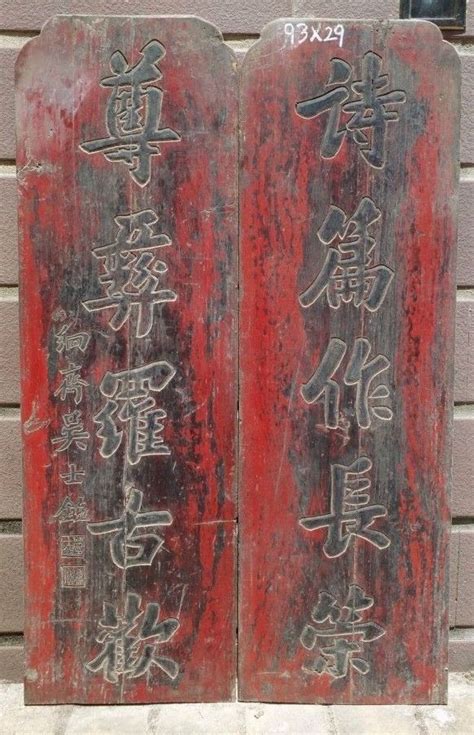 93X29
詩篇作長榮
尊彝羅古歡
絅齋吳士鑑